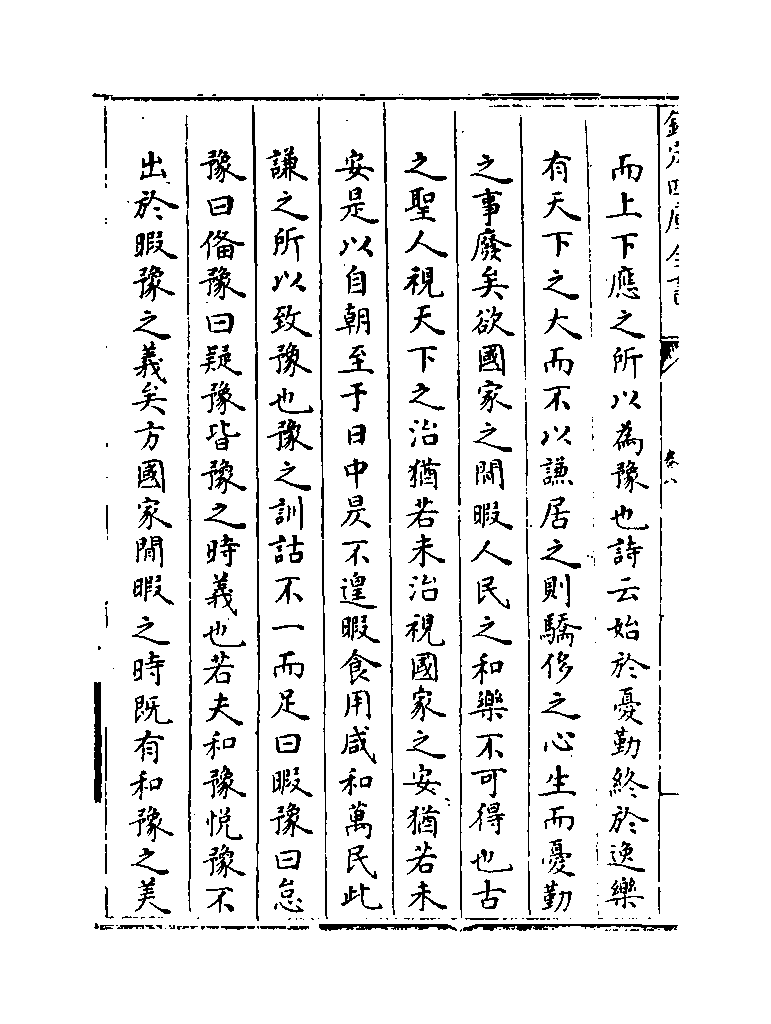 欽定四庫全書
卷八
而上下應之所以為豫也詩云始於憂勤終於逸樂
有天下之大而不以謙居之則驕侈之心生而憂勤
之事廢矣欲國家之閒暇人民之和樂不可得也古
之聖人視天下之治猶若未治視國家之安猶若未
安是以自朝至于日中昃不遑暇食用咸和萬民此
謙之所以致豫也豫之訓詁不一而足曰暇豫曰怠
豫曰備豫曰疑豫皆豫之時義也若夫和豫悅豫不
出於暇豫之義矣方國家閒暇之時既有和豫之美